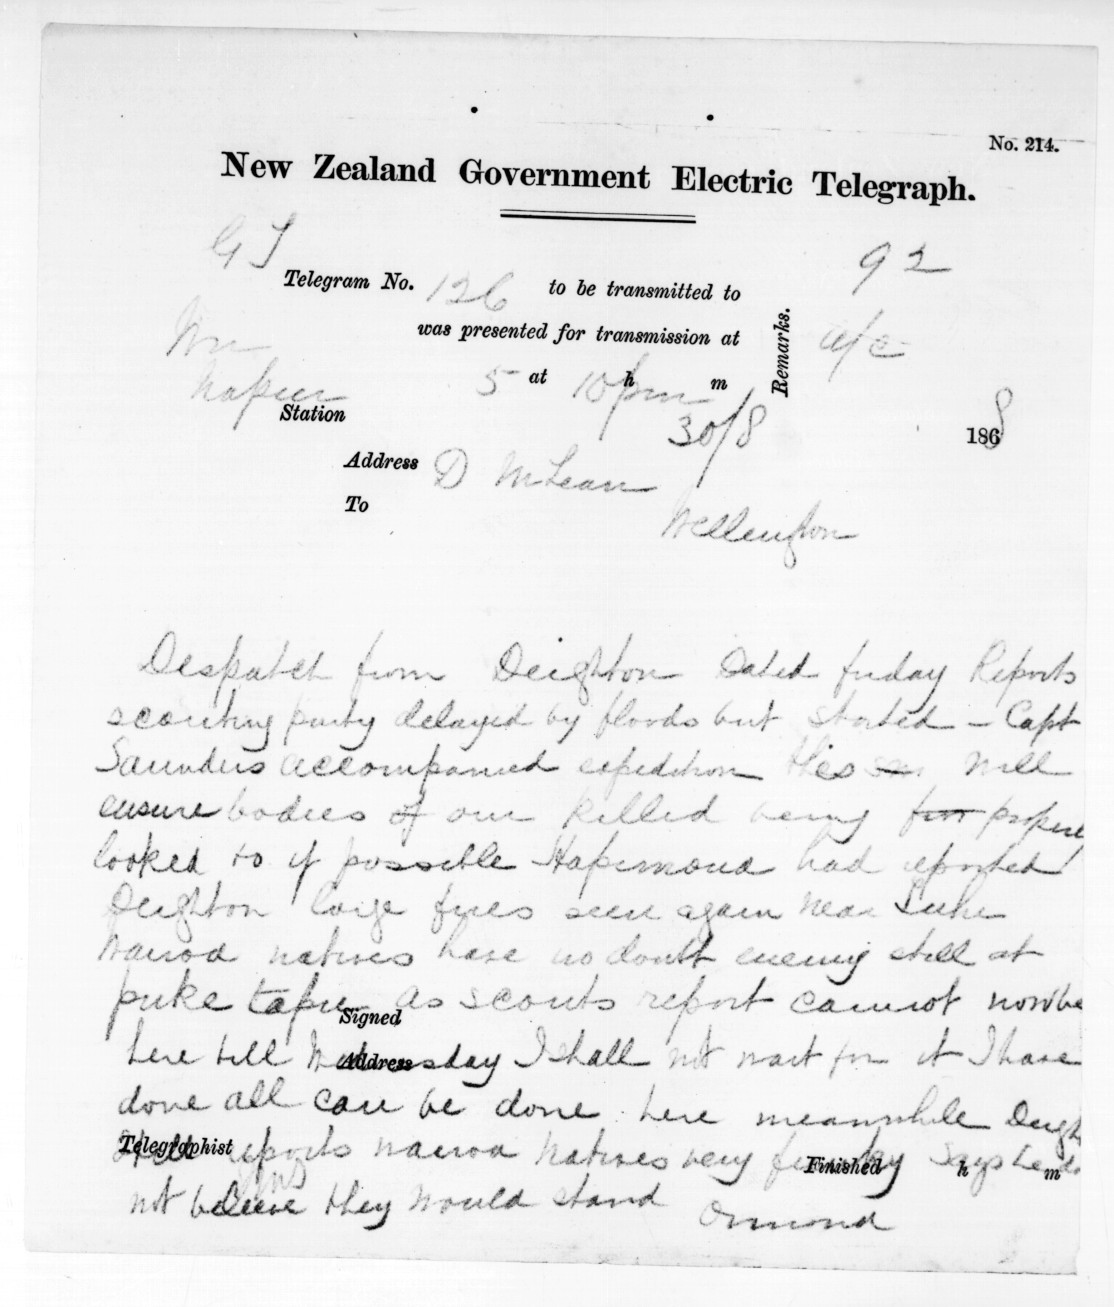 No. 214.
New Zealand Government Electric Telegraph.
GT
92
Telegram No. 126 to be transmitted to
was presented for transmission at
Remarks.
a/c
Napier
5 at 10 h pm m
Station
30/8 1868
Address D McLean
To
Wellington
Despatch from Deighton Dated friday Reports
scouting party delayed by floods but started - Capt
Saunders accompanied expedition this will
ensure bodies of our killed being for proper
looked to if possible Hapimana had reported
Deighton large fires seen again near Puke
Wairoa natives have no doubt enemy still at
puke tapu as scouts report cannot now be
Signed
here till Wednesday I shall not wait for it I have
Address
done all can be done here meanwhile Deigh
Telegraphist reports wairoa Natives very Finished says he do h m
finds
not believe they would stand Ormond